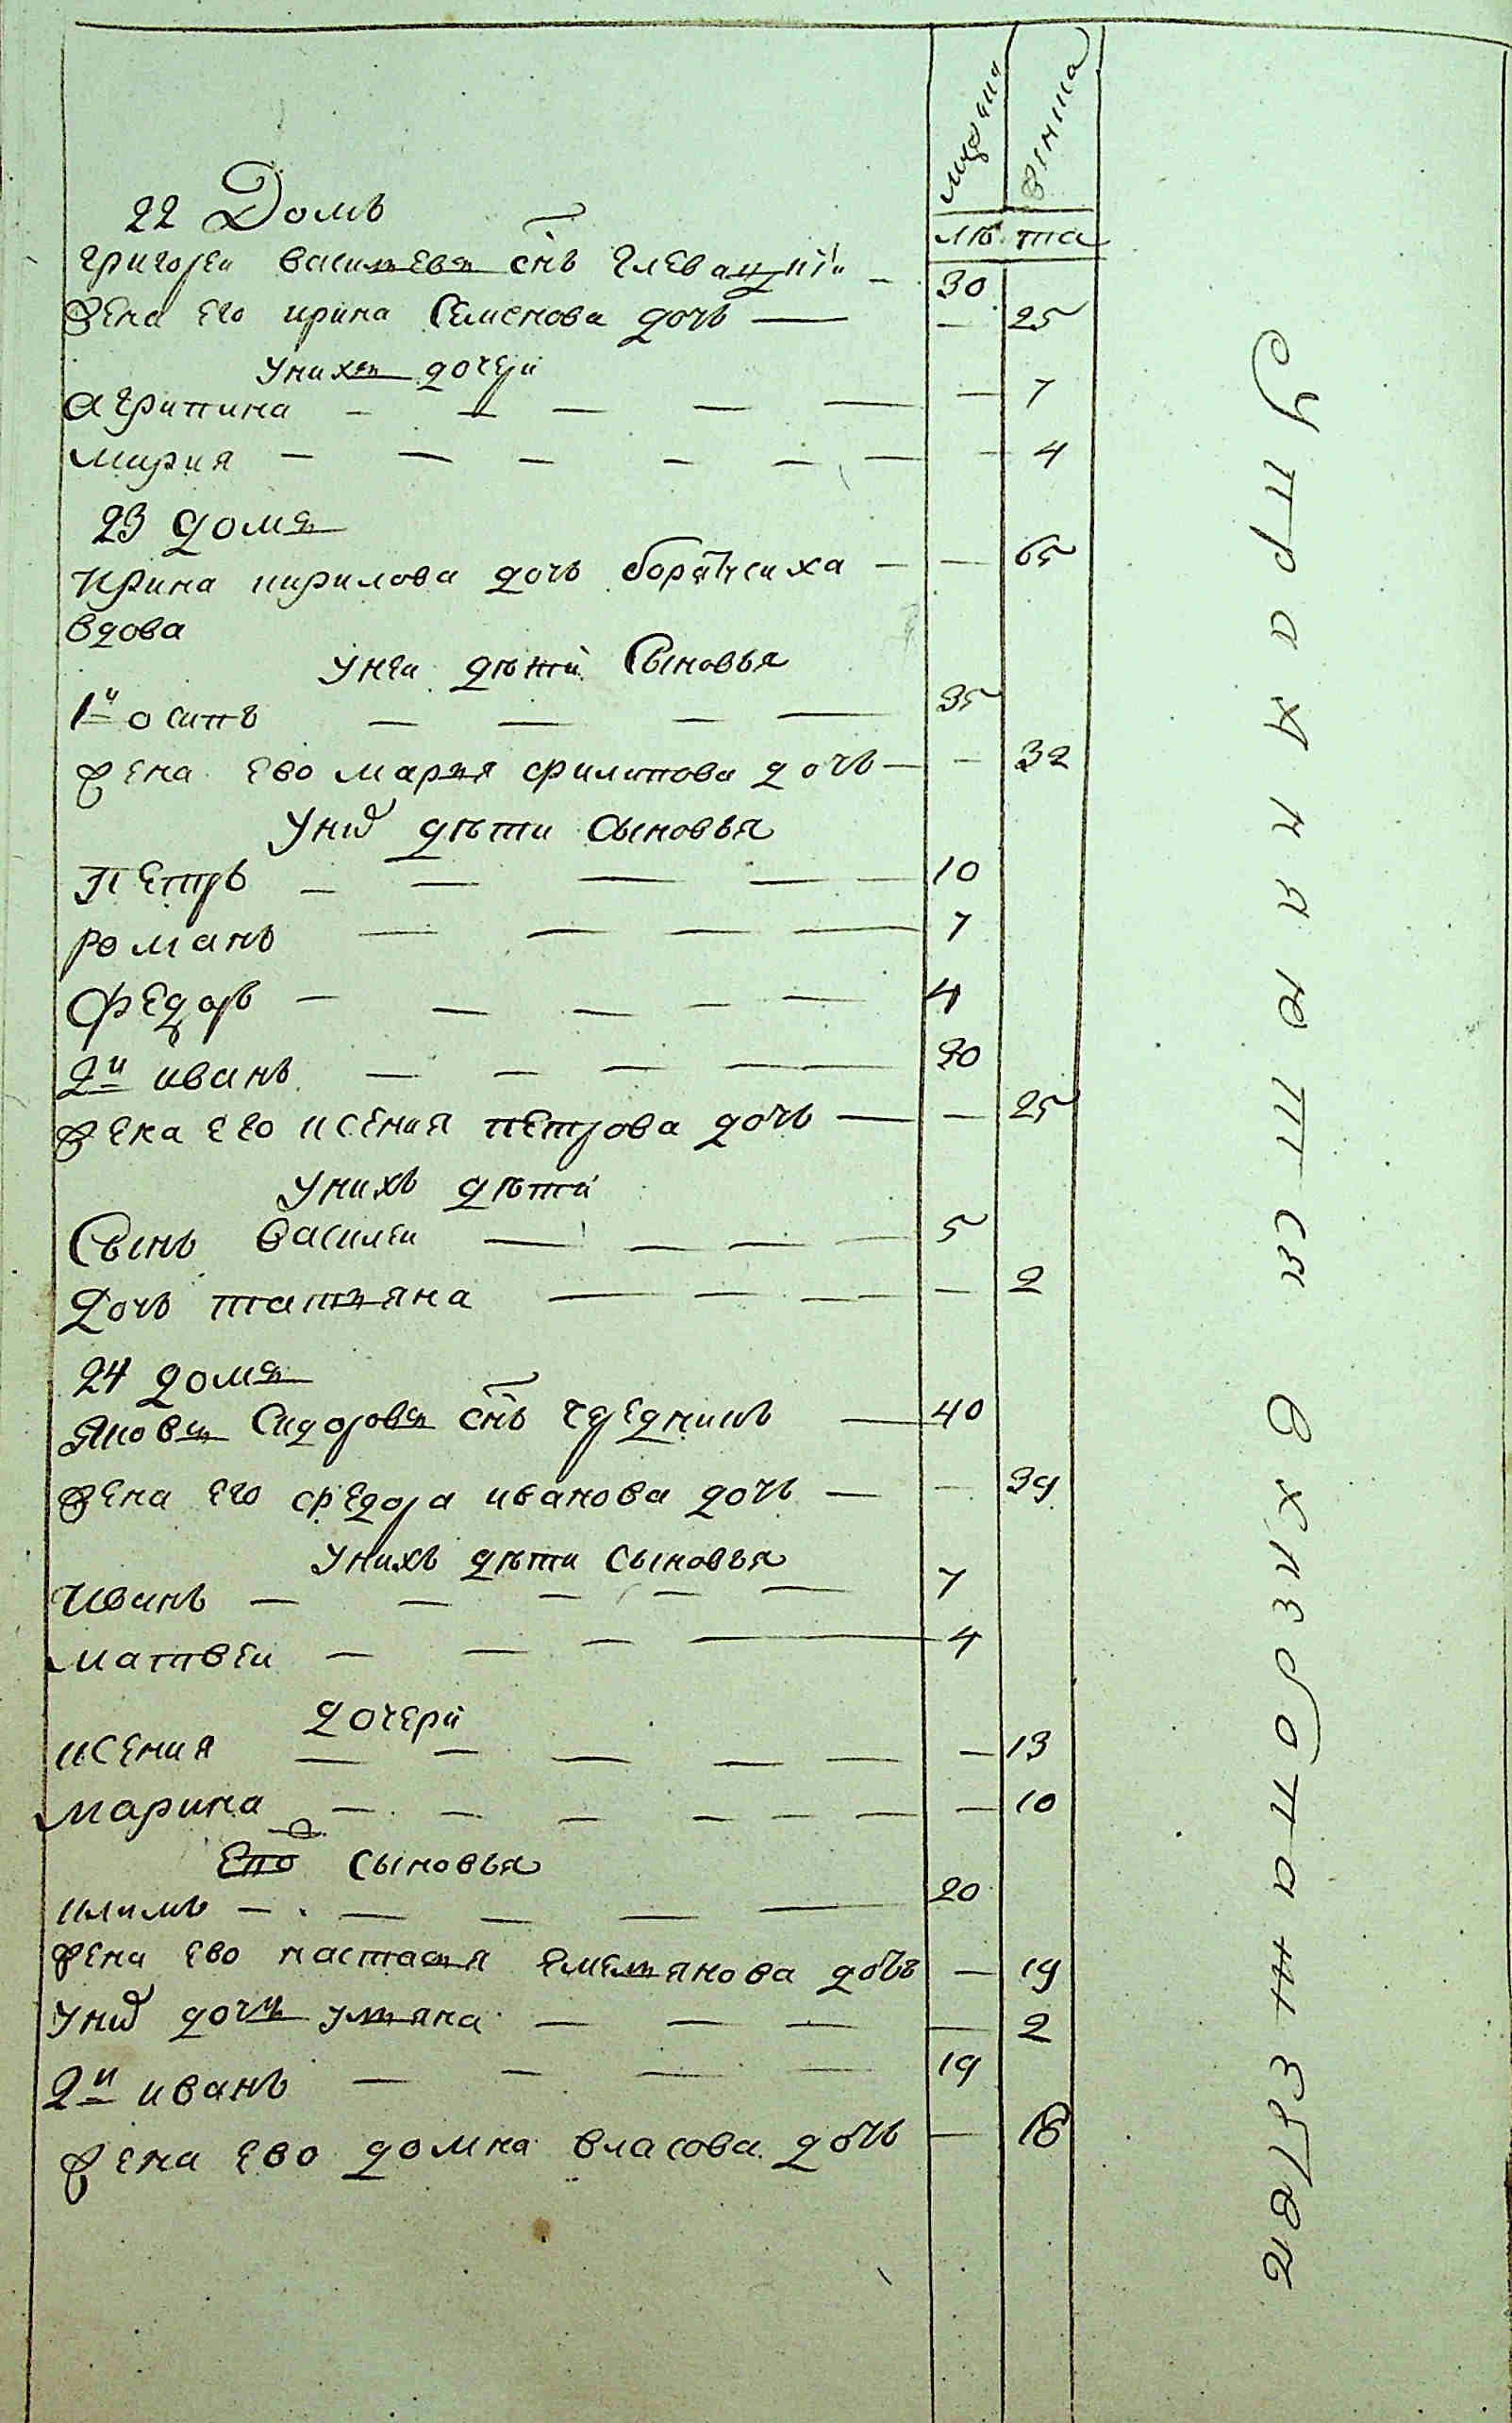 мужеска женска
лѣта
22 Домъ
григореи васильевъ сн̃ъ глевацкіи 30
жена его ирина Семенова дочь — 25
Унихъ дочери
агрипина — 7
мария — 4
23 домъ
Ирина кирилова дочь — 65
вдова
Унеи дѣти Сыновья
1й осипъ — 35
жена ево мария филипова дочь — 32
Унихъ дѣти Сыновья
Петръ — 10
романъ — 7
федоръ — 4
2й иванъ
жена его ксения петрова дочь — 25
Унихъ дѣти
Сынъ василеи — 5
Дочь татьяна — 2
24 домъ
яковъ Сидоровъ сн̃ъ чередникъ — 40
жена его федора иванова дочь — 39
Унихъ дѣти Сыновья
Иванъ — 7
матвеи — 4
дочери
ксения — 13
марина — 10
Его Сыновья
климъ — 20
жена ево настасья емельянова дочь — 19
Унихъ дочь ульяна — 2
2й иванъ — 19
жена ево домна власова дочь — 18